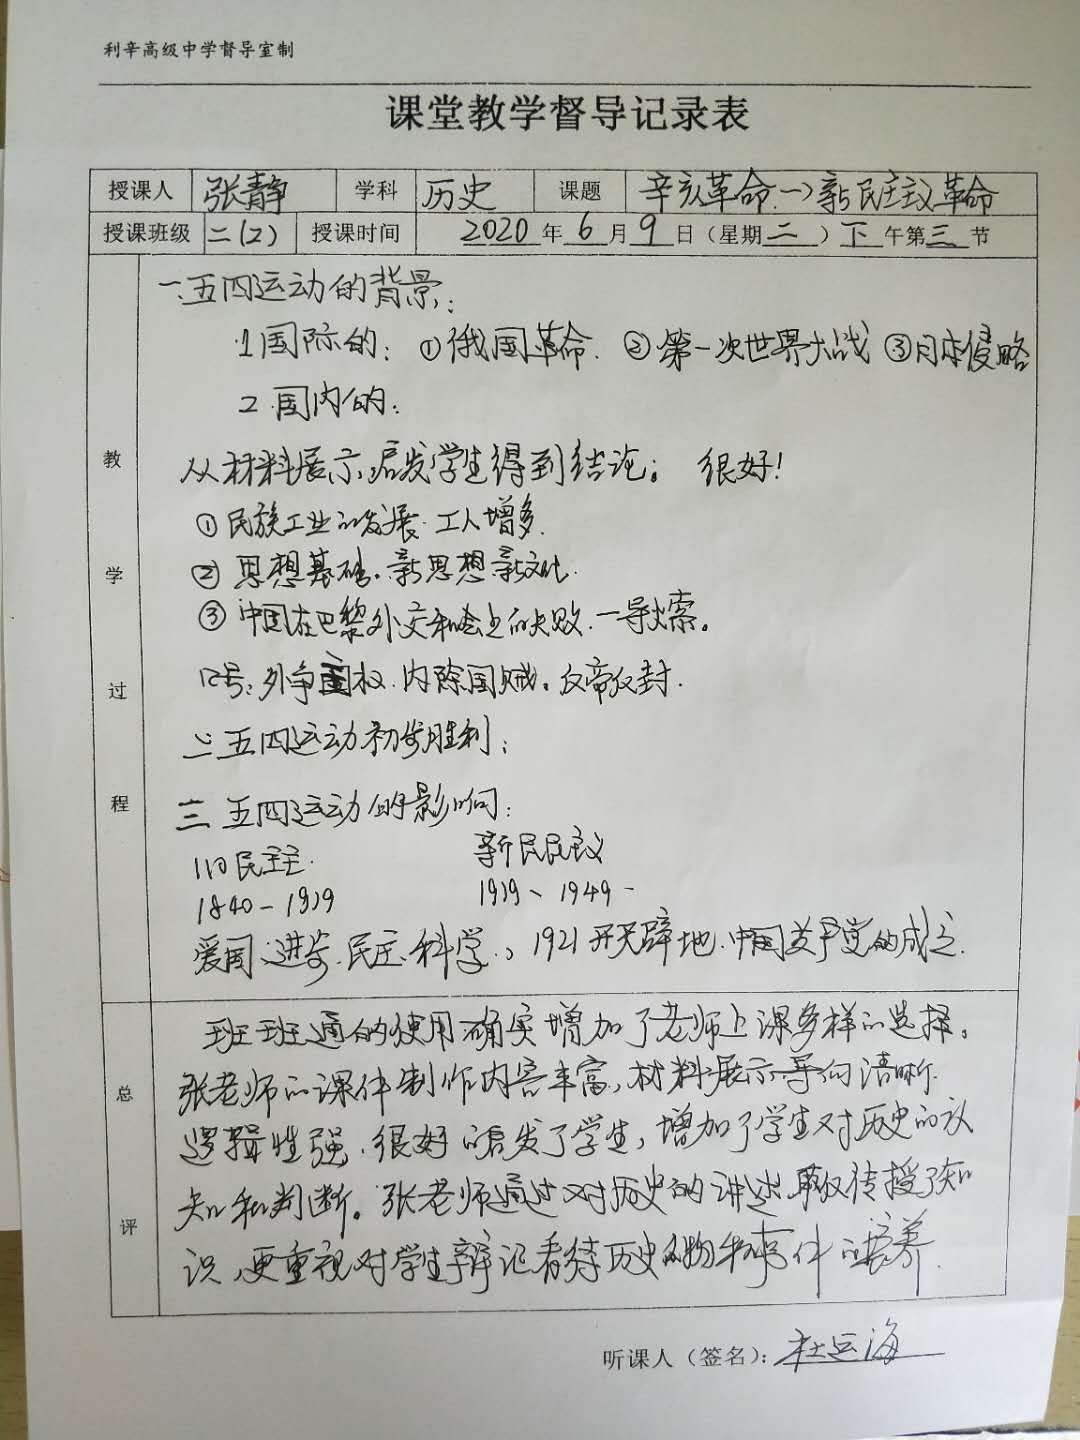 利辛高级中学督导室制
课堂教学督导记录表
授课人 张静 学科 历史 课题 辛亥革命→新民主主义革命
授课班级 二(2) 授课时间 2020年6月9日(星期二)下午第三节
教学过程
一、五四运动的背景:
1国际的: ①俄国革命. ②第一次世界大战 ③日本侵略
2.国内的:
从材料展示,启发学生得到结论。 很好!
①民族工业的发展.工人增多.
②思想基础.新思想新文化.
③中国在巴黎外交和会上的失败.—导火索。
口号:外争国权.内除国贼。反帝反封.
二五四运动初步胜利:
三 五四运动的影响:
旧民主. 新民主义
1840-1919 1919、1949-
爱国、进步.民主、科学.、1921开天辟地.中国共产党的成立.
总评
班班通的使用确实增加了老师上课多样的选择。
张老师的课件制作内容丰富,材料展示导向清晰.
逻辑性强.很好的启发了学生,增加了学生对历史的认
知和判断。张老师通过对历史的讲述 传授了知
识,更重视对学生辩记看待历史人物和事件的培养.
听课人(签名):杜运海